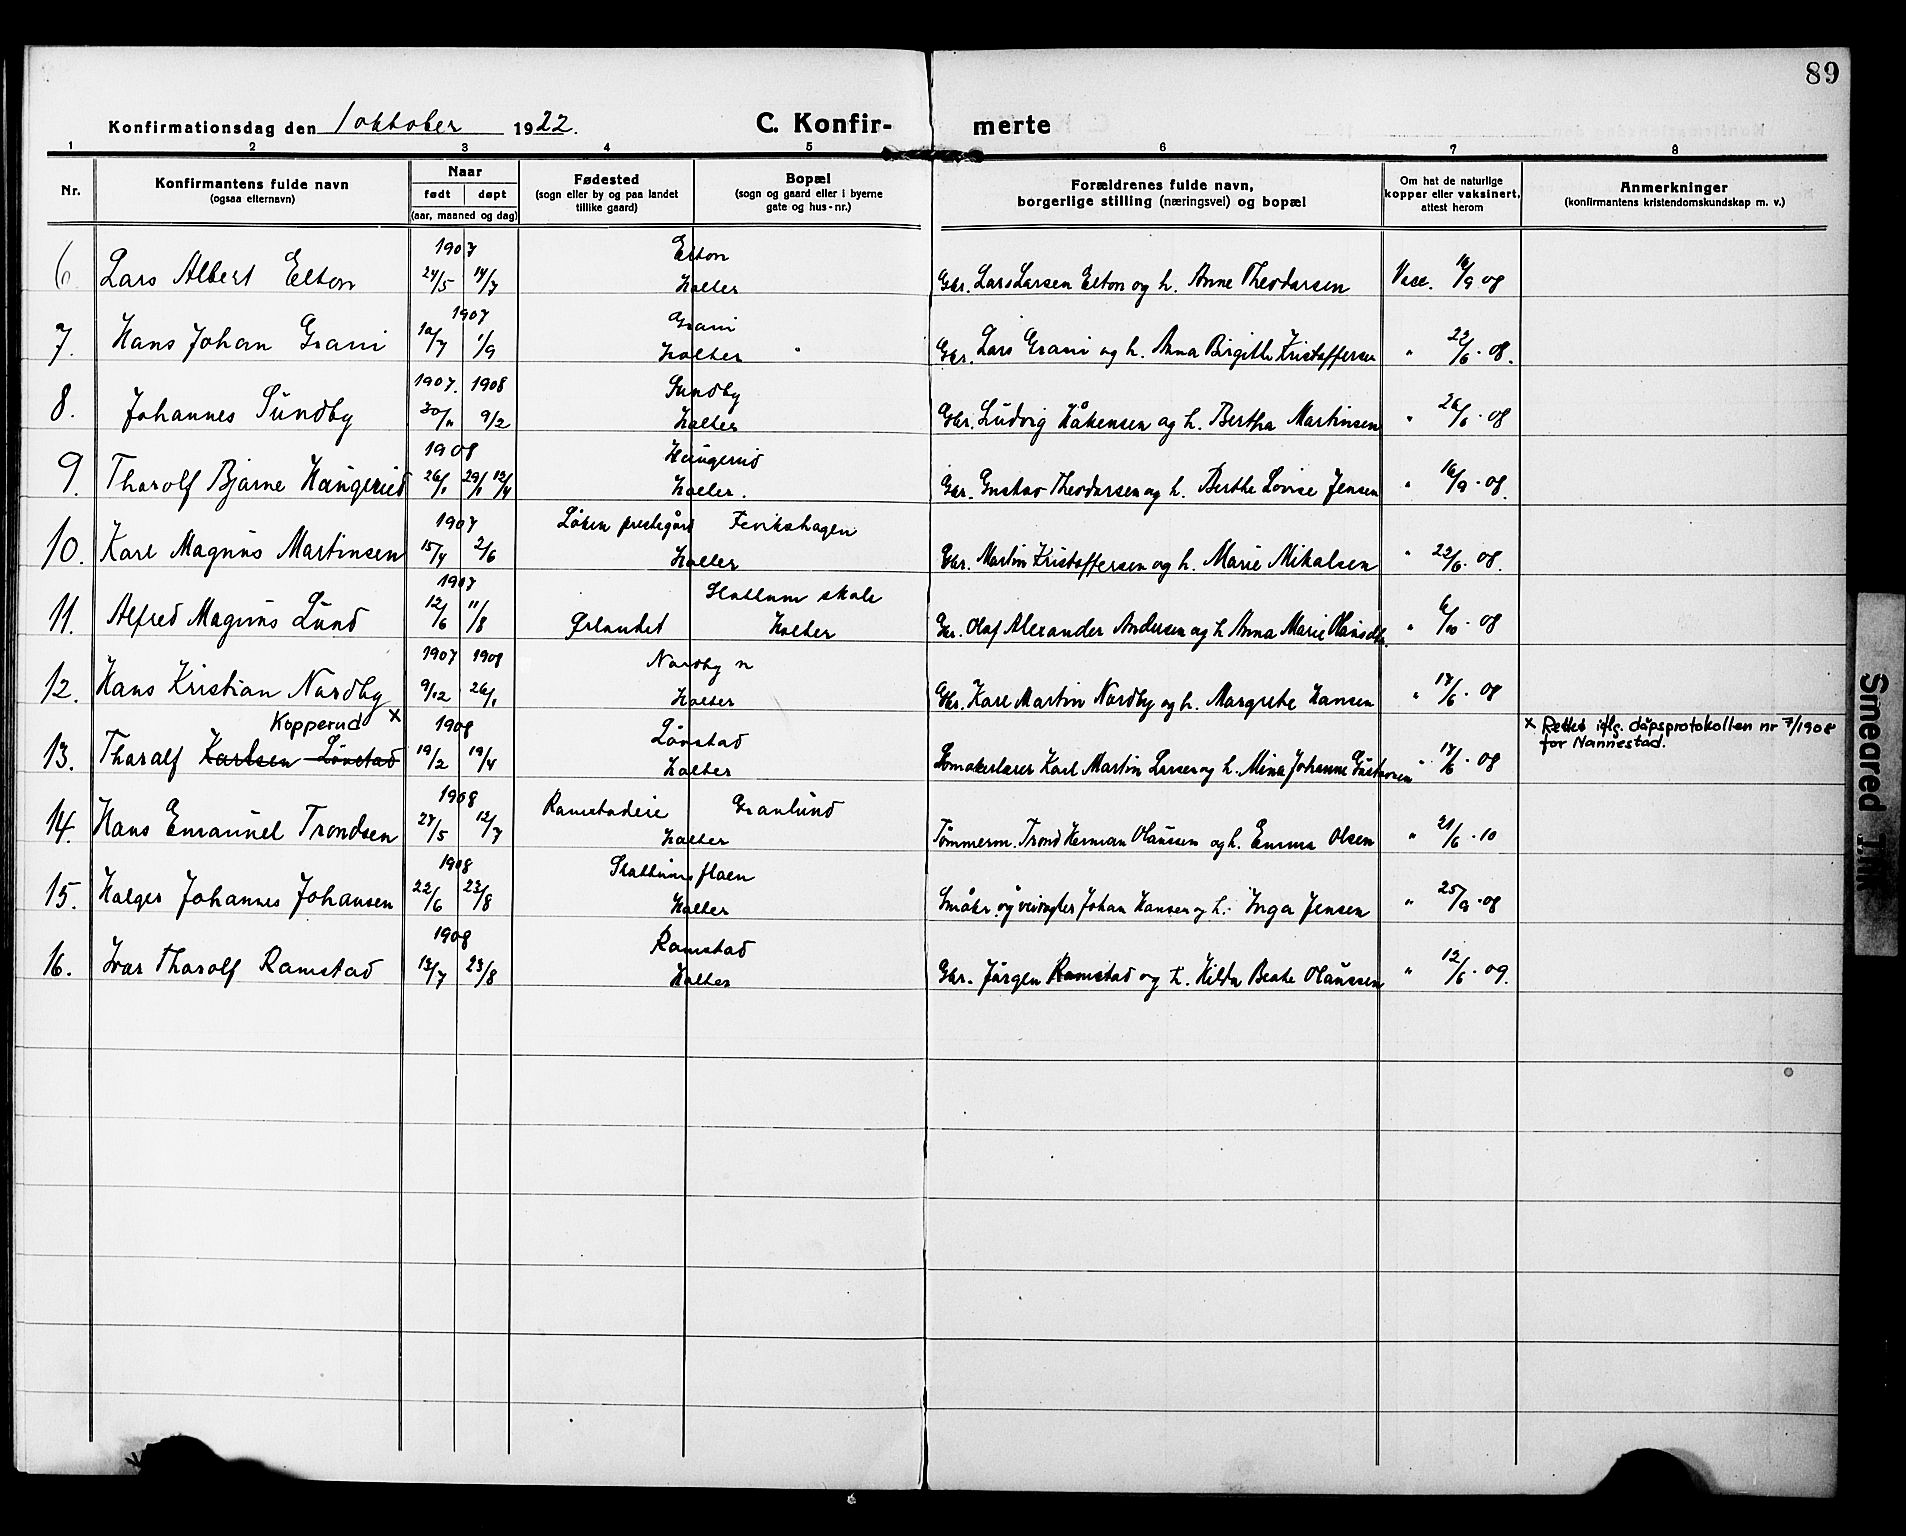 89
Konfirmationsdag den 1 oktober 1922.
C. Konfir- merte
1 2 3 4 5 6 7 8
Nr.
Konfirmantens fulde navn
(ogsaa efternavn)
Naar
født døpt
(aar, maaned og dag)
Fødested
(sogn eller by og paa landet
tillike gaard)
Bopæl
(sogn og gaard eller i byerne
gate og hus-nr.)
Forældrenes fulde navn,
borgerlige stilling (næringsvei) og bopæl
Om hat de naturlige
kopper eller vaksinert,
attest herom
Anmerkninger
(konfirmantens kristendomskundskap m. v.)
1907 Elton
6 Lars Albert Elton 24/5 14/7 Holter Gbr. Lars Larsen Elton og h. Anne Theodorsen Vacc. 16/9 08
1907 Grani
7. Hans Johan Grani 10/7 1/9 Holter Gbr. Lars Grani og h. Anna Birgitte Kristoffersen " 22/6 · 08.
1907. 1908 Sundby
8. Johannes Sundby 30/11 9/2 Holter Gbr. Ludvig Håkensen og h. Bertha Martinsen " 26/6 · 08
1908 Haugerud
9. Tharolf Bjarne Haugerud 26/1 12/4 Holter. Gbr. Gustav Theodorsen og h. Berthe Lovise Jensen " 16/9 · 08.
1907 Løken prestegård Fevikshagen
10. Karl Magnus Martinsen 15/4 2/6 Holter Gbr. Martin Kristoffersen og h. Marie Mikalsen " 22/6 · 08.
1907 skole
11. Alfred Magnus Lund 12/6 11/8 Ørlandet Holter Gbr. Olaf Alexander Andersen og h. Anna Marie " 6/10 · 08
1907 1908 Nordby n
12. Hans Kristian Nordby 9/12 26/1 Holter Gbr. Karl Martin Nordby og h. Margrete Hansen " 17/6 · 08
Kopperud x 1908 Løvstad x Rettet iflg. dåpsprotokollen nr 7/1908
13. Tharalf Karlsen Løvstad 19/2 19/4 Holter Karl Martin Larsen og h. Mina Johanne Gustavsen " 17/6 · 08 for Nannestad.
1908 Ramstadeie Granlund
14. Hans Emanuel Trondsen 27/5 12/7 Holter Tømmerm. Trond Herman Olaussen og h. Emma Olsen " 21/6 · 10
1908
15. Holger Johannes Johansen 22/6 23/8 Holter Småbr. og veivogter Johan Hansen og h. Inga Jensen " 25/9 · 08
1908 Ramstad
16. Ivar Tharolf Ramstad 13/7 23/8 Holter Gbr. Jørgen Ramstad og h. Hilda Beate Olaussen " 12/6 · 09.
Smeared Ink